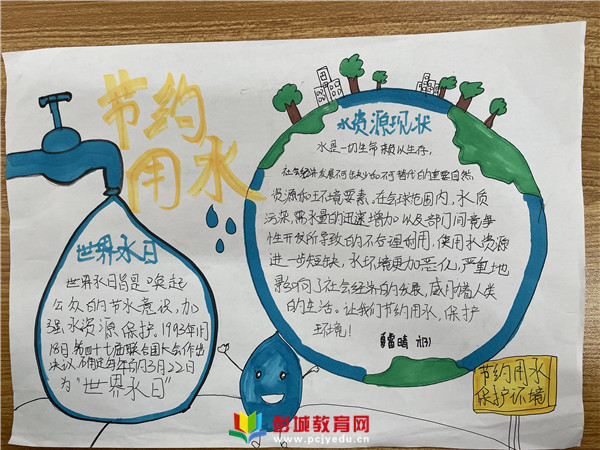 节约
用水
世界水日
世界水日旨是唤起
公众的节水意识，加
强水资源保护。1993年1月
18日第四十七届联合国大会作出
决议，确定每年的3月22日
为“世界水日”
水资源现状
水是一切生命赖以生存，
社会经济发展不可缺少和不可替代的重要自然
资源和环境要素。在全球范围内，水质
污染，需水量的迅速增加以及部门间竞争
性开发所导致的不合理利用，使用水资源
进一步短缺，水环境更加恶化，严重地
影响了社会经济的发展，威胁着人类
的生活。让我们节约用水，保护
环境！
节约用水
保护环境
彭城教育网
www.pcjyedu.cn